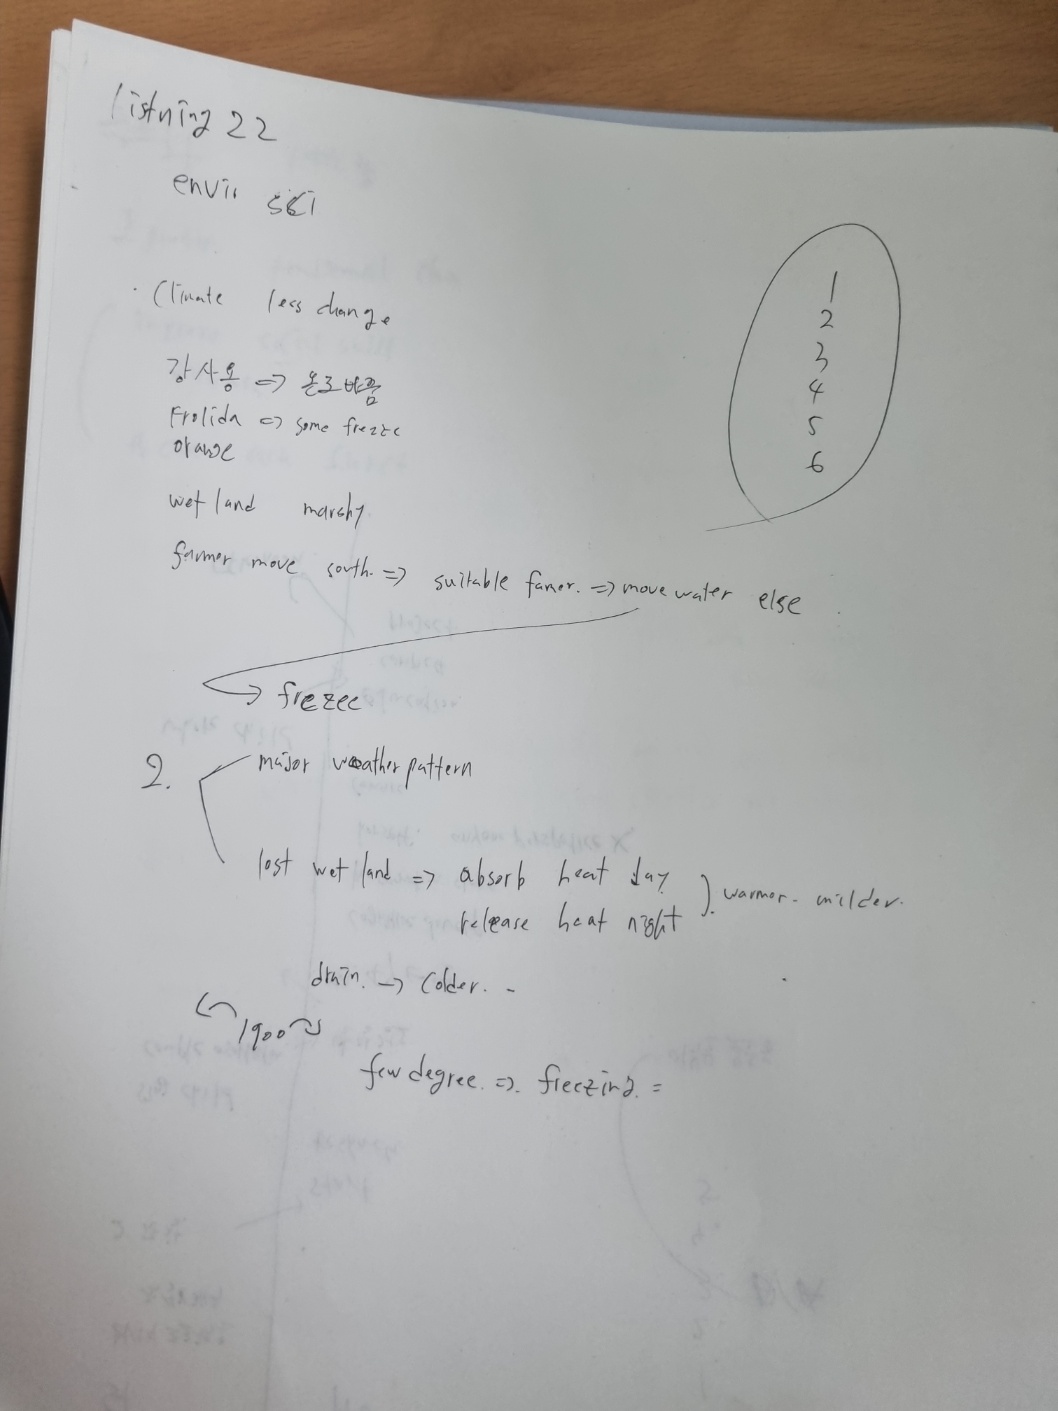 listning 22
envir sci
· Climate less change
강사용 => 온도바뀜
Frolida => some frezze
orange
wet land marshy
farmer move south. => suitable famer. => move water else
frezee
2. major weather pattern
lost wet land => absorb heat day
release heat night
warmer. milder.
drain. -> Colder. -
1900
few degree. =>. freezing. =
1
2
3
4
5
6